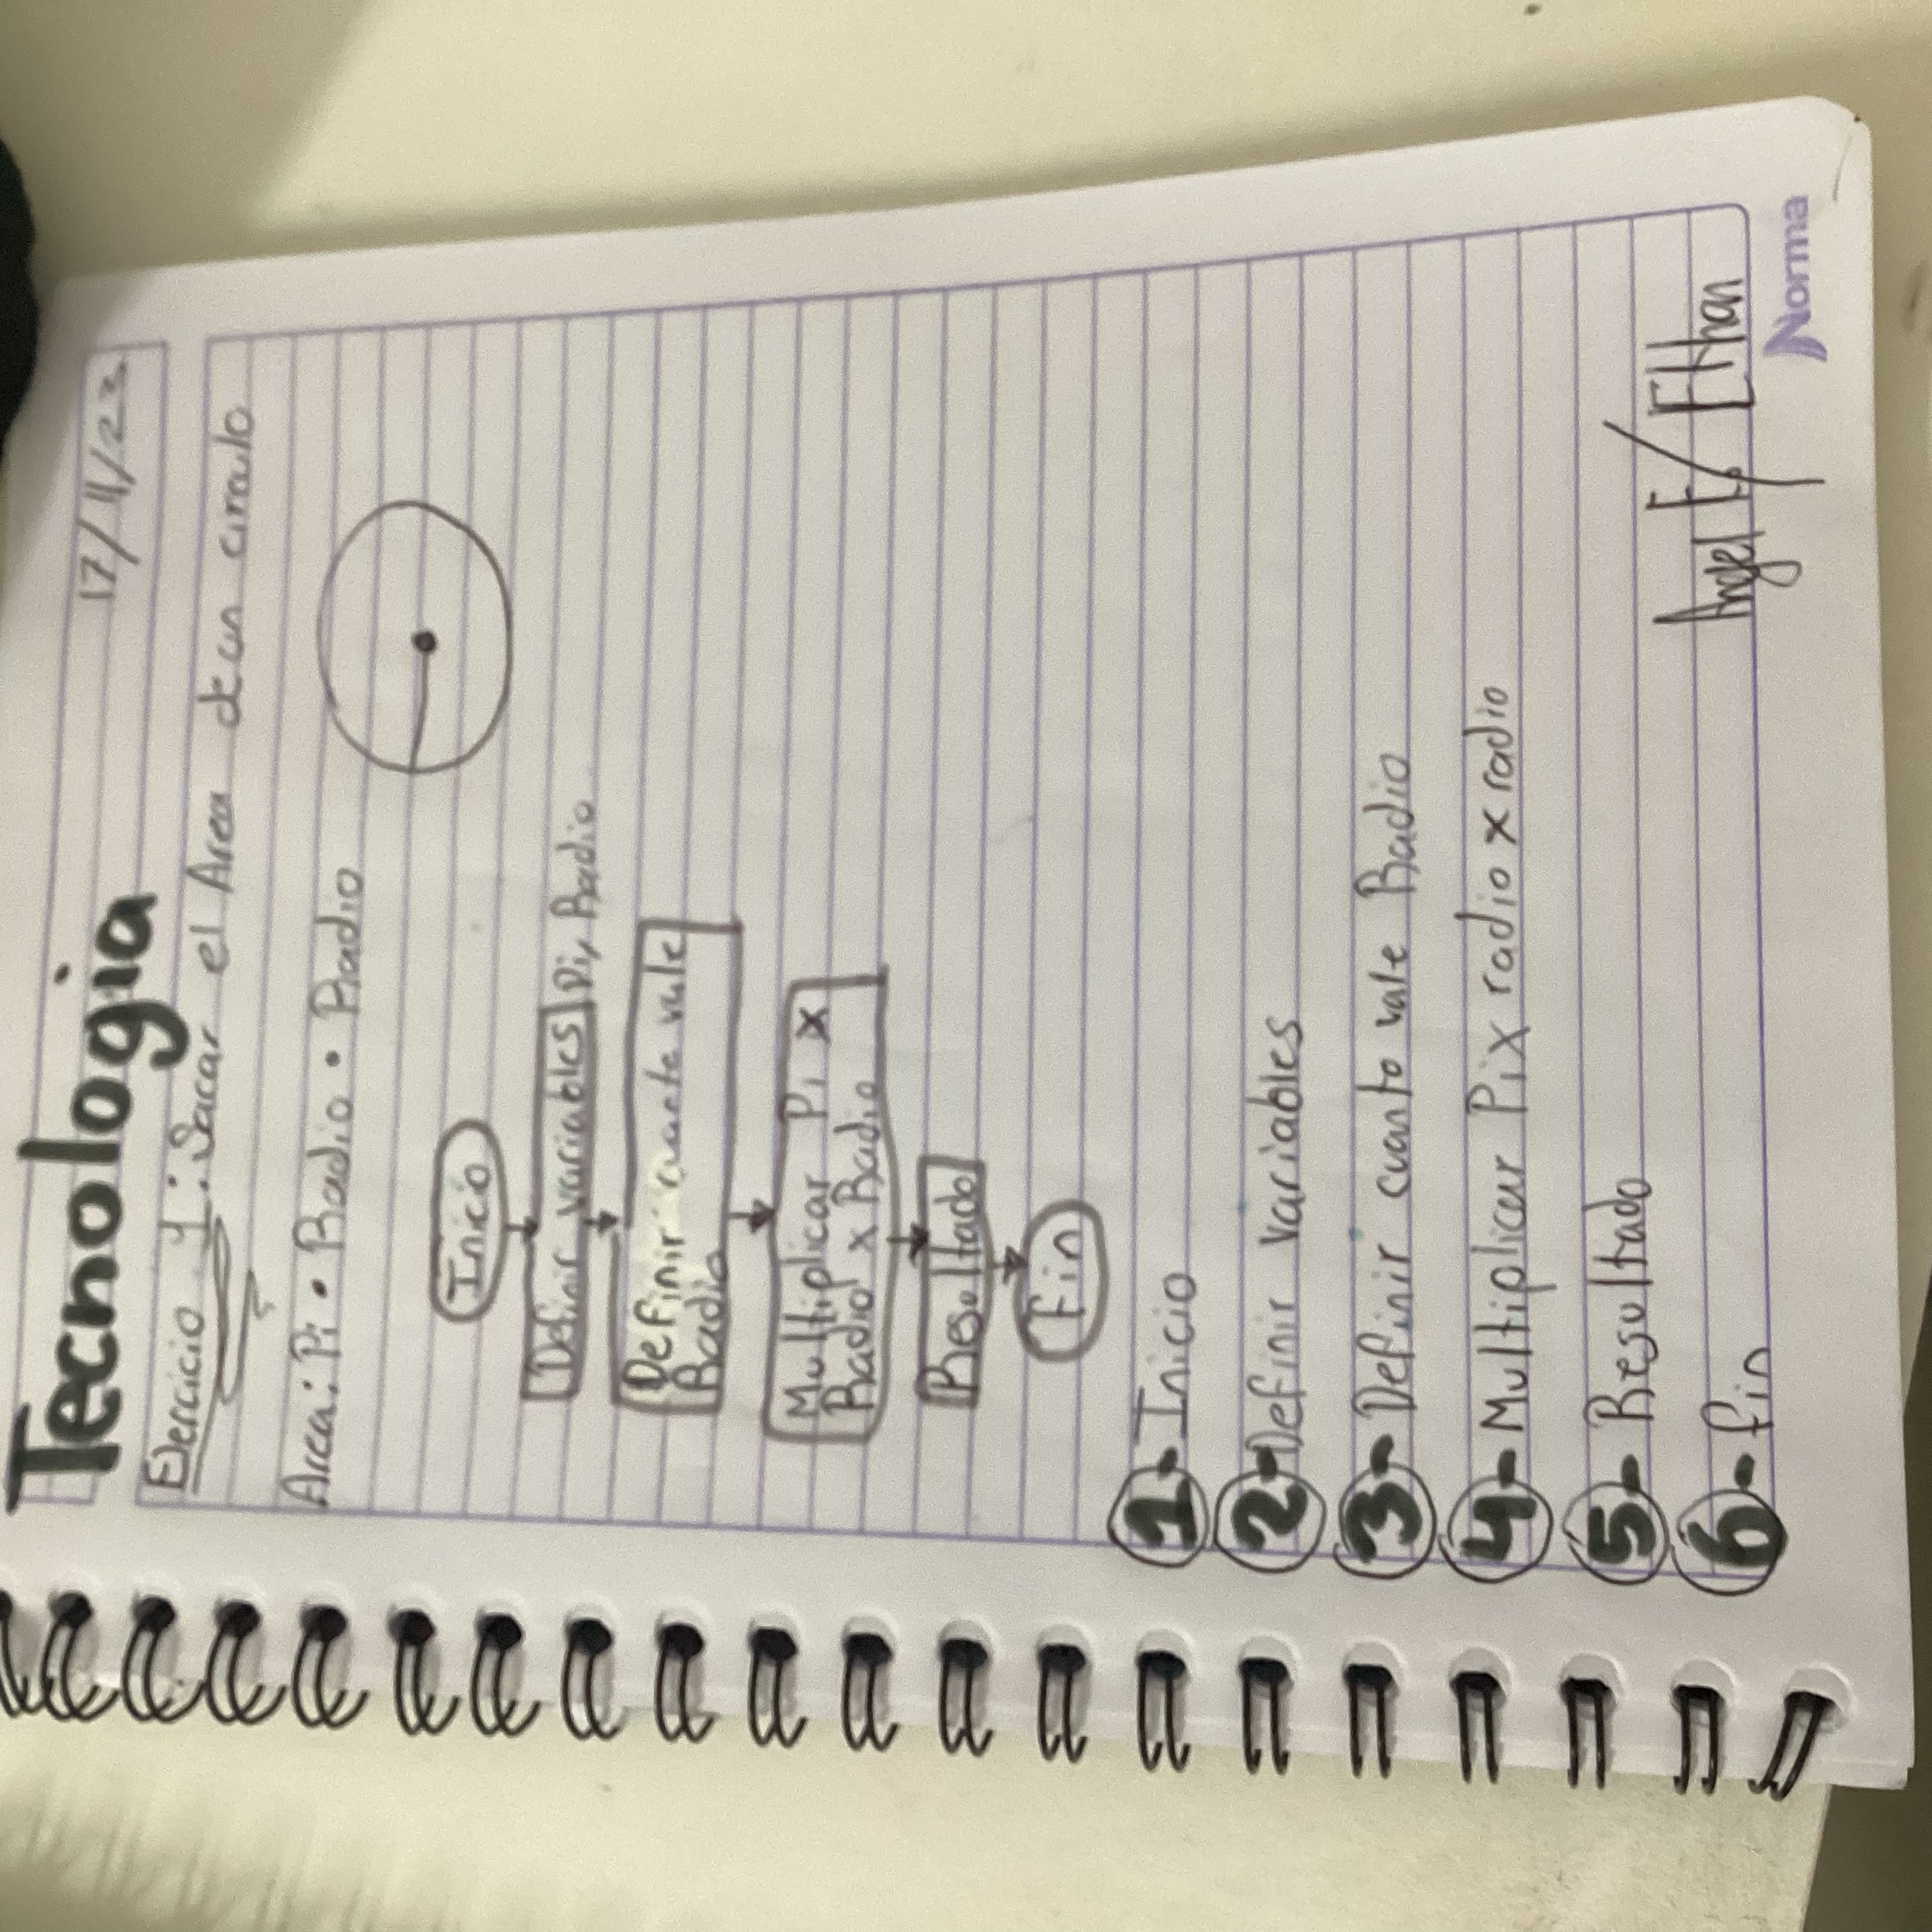 Tecnologia
17/11/23
Ejercicio 4: Sacar el Area de un circulo
Area: Pi • Radio • Radio
Inicio
Definir variables Pi, Radio
Definir cuanto vale
Radio
Multiplicar Pi x
Radio x Radio
Resultado
Fin
1-Inicio
2-Definir variables
3-Definir cuanto vale Radio
4-Multiplicar Pi x radio x radio
5-Resultado
6-fin
Angel E/Ethan
Norma